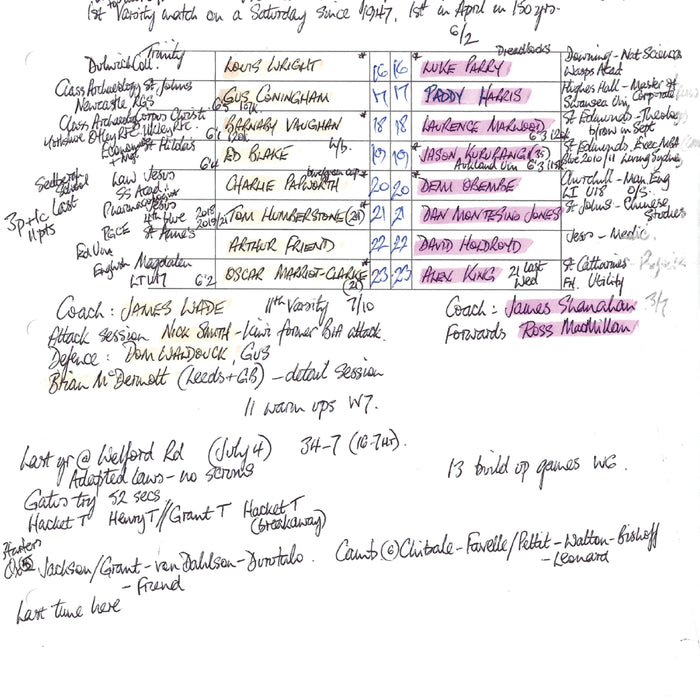 1st Varsity match on a Saturday since 1947, 1st in April in 150 yrs.
6/2
Dulwich Coll. Trinity LOUIS WRIGHT * 16 16 * LUKE PARRY Dreadlocks Downing - Nat Sciences
Wasps Acad
Class Archaeology St Johns GUS CONINGHAM 17 17 PADDY HARRIS Hughes Hall - Master of
Newcastle RGS Swansea Uni, Corporate
Class Archaeology Corpus Christi BARNABY VAUGHAN * 18 18 LAURENCE MARWOOD St Edmunds - Theology
Yorkshire Otley RFC, Wharfe RFC. 6'1 6'3
Economics St Hildas ED BLAKE 6'4 19 19 * JASON KURURANGI (35) St Edmunds, Exec MBA
Auckland Uni 6'3 Blue 2010/11 Living Sydney
Sedbergh School Law Jesus CHARLIE PAPWORTH 20 20 * DEMI OBEMBE Churchill - Man Eng
SS Acad LI U18 O/S
3p+1c 11pts Last Jesus 4th blue 2018 2019/21 TOM HUMBERSTONE (29) 21 21 * DAN MONTESINO JONES St Johns - Chinese
Studies
PGCE St Anne's ARTHUR FRIEND 22 22 DAVID HOLDROYD Jesus - Medic.
Ed Uni
English Magdalen OSCAR MARRIOT-CLARKE * (21) 23 23 ALEX KING 21 last Wed St Catharines
LI U17 6'2 FH. Utility
Coach: JAMES WADE 11th Varsity 7/10 Coach: James Shanahan 3/7
Attack session NICK SMITH - Liris former BHA attack. Forwards Ross MacMillan
Defence: DOM WALDOUCK, GUS
Brian McDermott (Leeds+GB) - detail session
11 warm ups W7.
Last yr @ Welford Rd (July 4) 34-7 (16-7 HT).
Adapted laws - no scrums 13 build up games W6.
Gatus try 52 secs
Hacket T Henry T // Grant T Hacket T
(breakaway)
Starters
Ox Jackson/Grant - van Dahlson - Durutalo. Camb ⑥ Chibale - Favelle/Pettit - Walton - Bishoff
- Friend - Leonard
Last time here